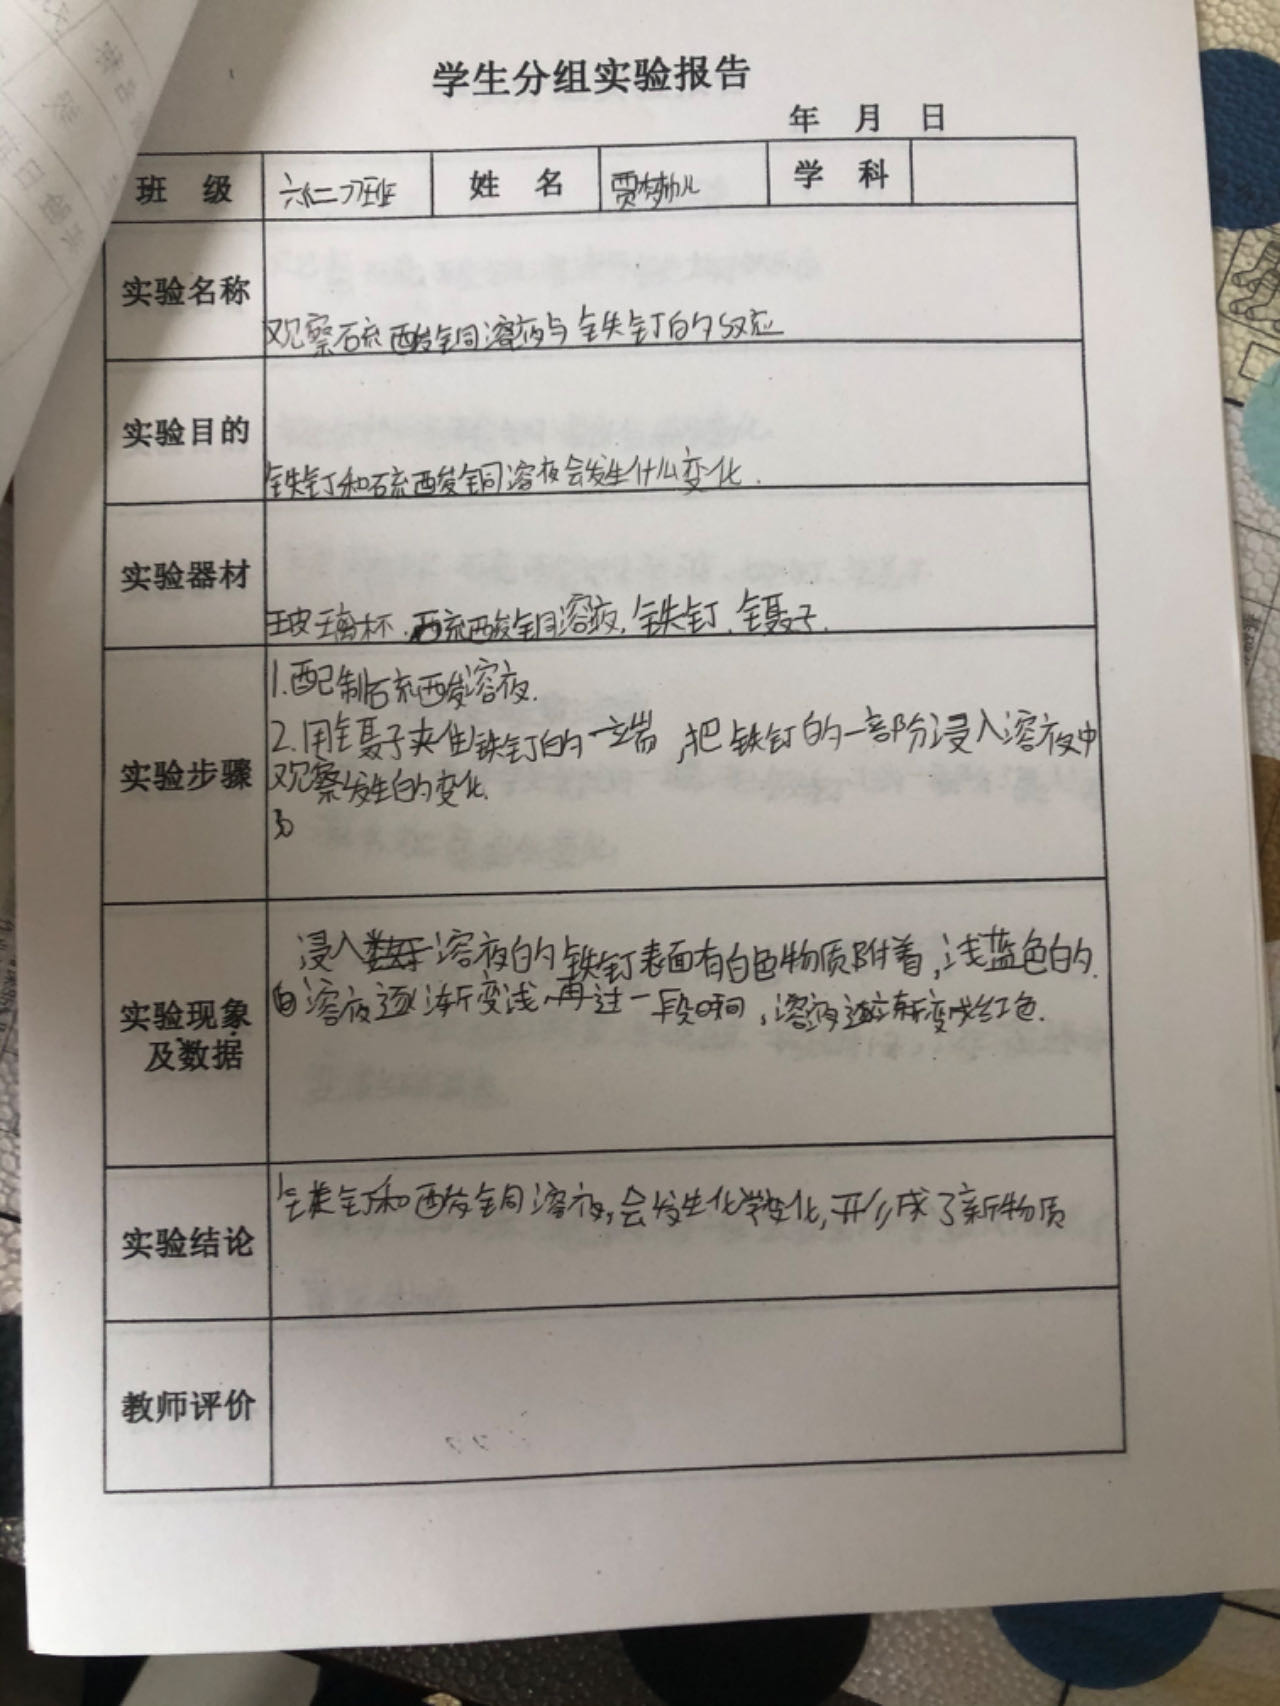 学生分组实验报告
年 月 日
班 级 六(二)班 姓 名 贾梦幼儿 学 科
实验名称
观察硫酸铜溶液与铁钉的反应
实验目的
铁钉和硫酸铜溶液会发生什么变化.
实验器材
玻璃杯.硫酸铜溶液.铁钉.镊子.
实验步骤
1.配制硫酸溶液.
2.用镊子夹住铁钉的一端,把铁钉的一部分浸入溶液中
观察发生的变化.
实验现象
及数据
浸入溶液的铁钉表面有白色物质附着,浅蓝色的
溶液逐渐变浅.再过一段时间,溶液逐渐变成红色.
实验结论
铁钉和酸铜溶液,会发生化学变化,形成了新物质
教师评价